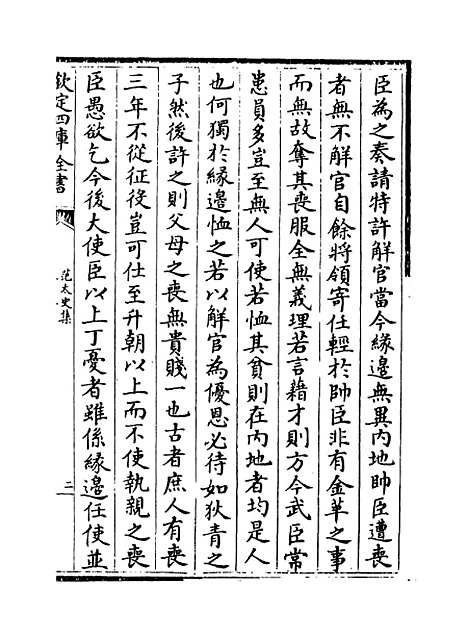 臣為之奏請特許解官當今緣邊無異内地帥臣遭喪
者無不解官自餘將領寄任輕於帥臣非有金革之事
而無故奪其喪服全無義理若言藉才則方今武臣常
患員多豈至無人可使若恤其貧則在内地者均是人
也何獨於緣邊恤之若以解官為優恩必待如狄青之
子然後許之則父母之喪無貴賤一也古者庶人有喪
三年不從征役豈可仕至升朝以上而不使執親之喪
臣愚欲乞今後大使臣以上丁憂者雖係緣邊任使並
欽定四庫全書
范太史集
二